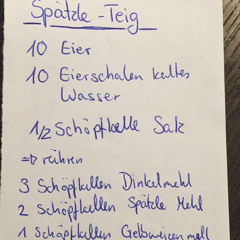 Spätzle-Teig
10 Eier
10 Eierschalen kaltes
Wasser
1/2 Schöpfkelle Salz
=> rühren
3 Schöpfkellen Dinkelmehl
2 Schöpfkellen Spätzle Mehl
1 Schöpfkellen Gelbweizenmehl